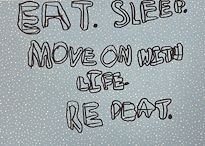 EAT. SLEEP.
MOVE ON WITH
LIFE.
REPEAT.